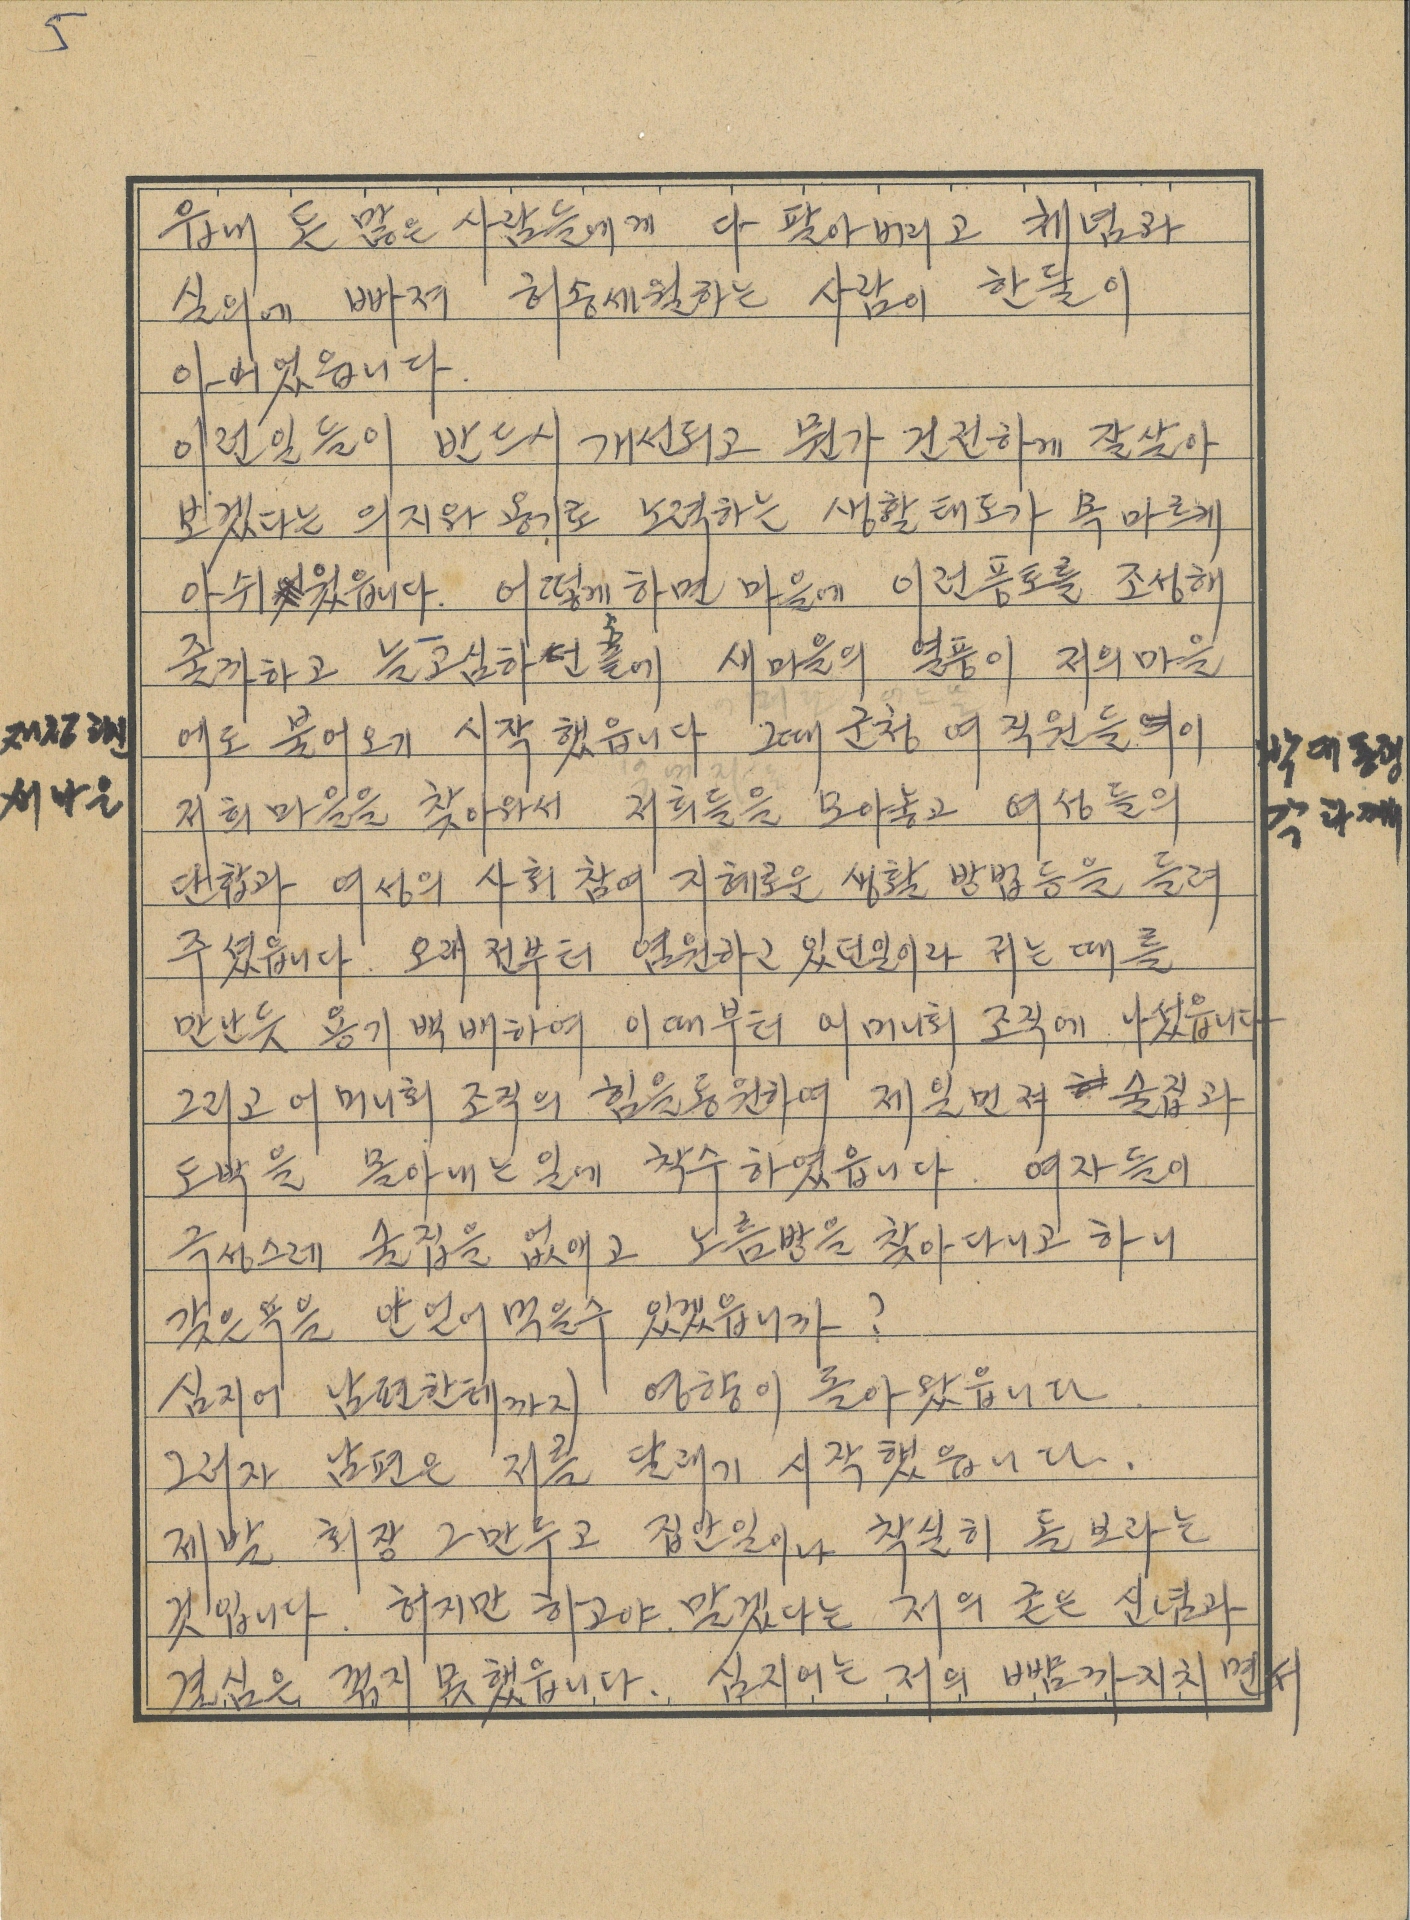 5
읍내 돈 많은 사람들에게 다 팔아버리고 체념과
실의에 빠져 허송세월하는 사람이 한둘이
아니었읍니다.
이런일들이 반드시 개선되고 뭔가 건전하게 잘살아
보겠다는 의지와 용기로 노력하는 생활태도가 목마르게
아쉬웠읍니다. 어떻게하면 마을에 이런풍토를 조성해
줄까하고 늘 고심하던 중에 새마을의 열풍이 저의마을
에도 불어오기 시작했읍니다 그때 군청 여직원들이
저희마을을 찾아와서 저희들을 모아놓고 여성들의
단합과 여성의 사회참여 지혜로운 생활 방법등을 들려
주셨읍니다. 오래전부터 염원하고 있던일이라 저는 때를
만난듯 용기백배하여 이때부터 어머니회 조직에 나섰읍니다
그리고 어머니회 조직의 힘을동원하여 제일먼저 술집과
도박을 몰아내는일에 착수하였읍니다. 여자들이
극성스레 술집을 없애고 노름방을 찾아다니고 하니
갖은욕을 안얻어먹을수 있겠읍니까?
심지어 남편한테까지 영향이 돌아왔읍니다.
그러자 남편은 저를 달래기 시작했읍니다.
제발 회장 그만두고 집안일이나 착실히 돌보라는
것입니다. 허지만 하고야 말겠다는 저의 굳은 신념과
결심은 꺾지못했읍니다. 심지어는 저의 뺨까지치면서
새마을
박대통령
각하께